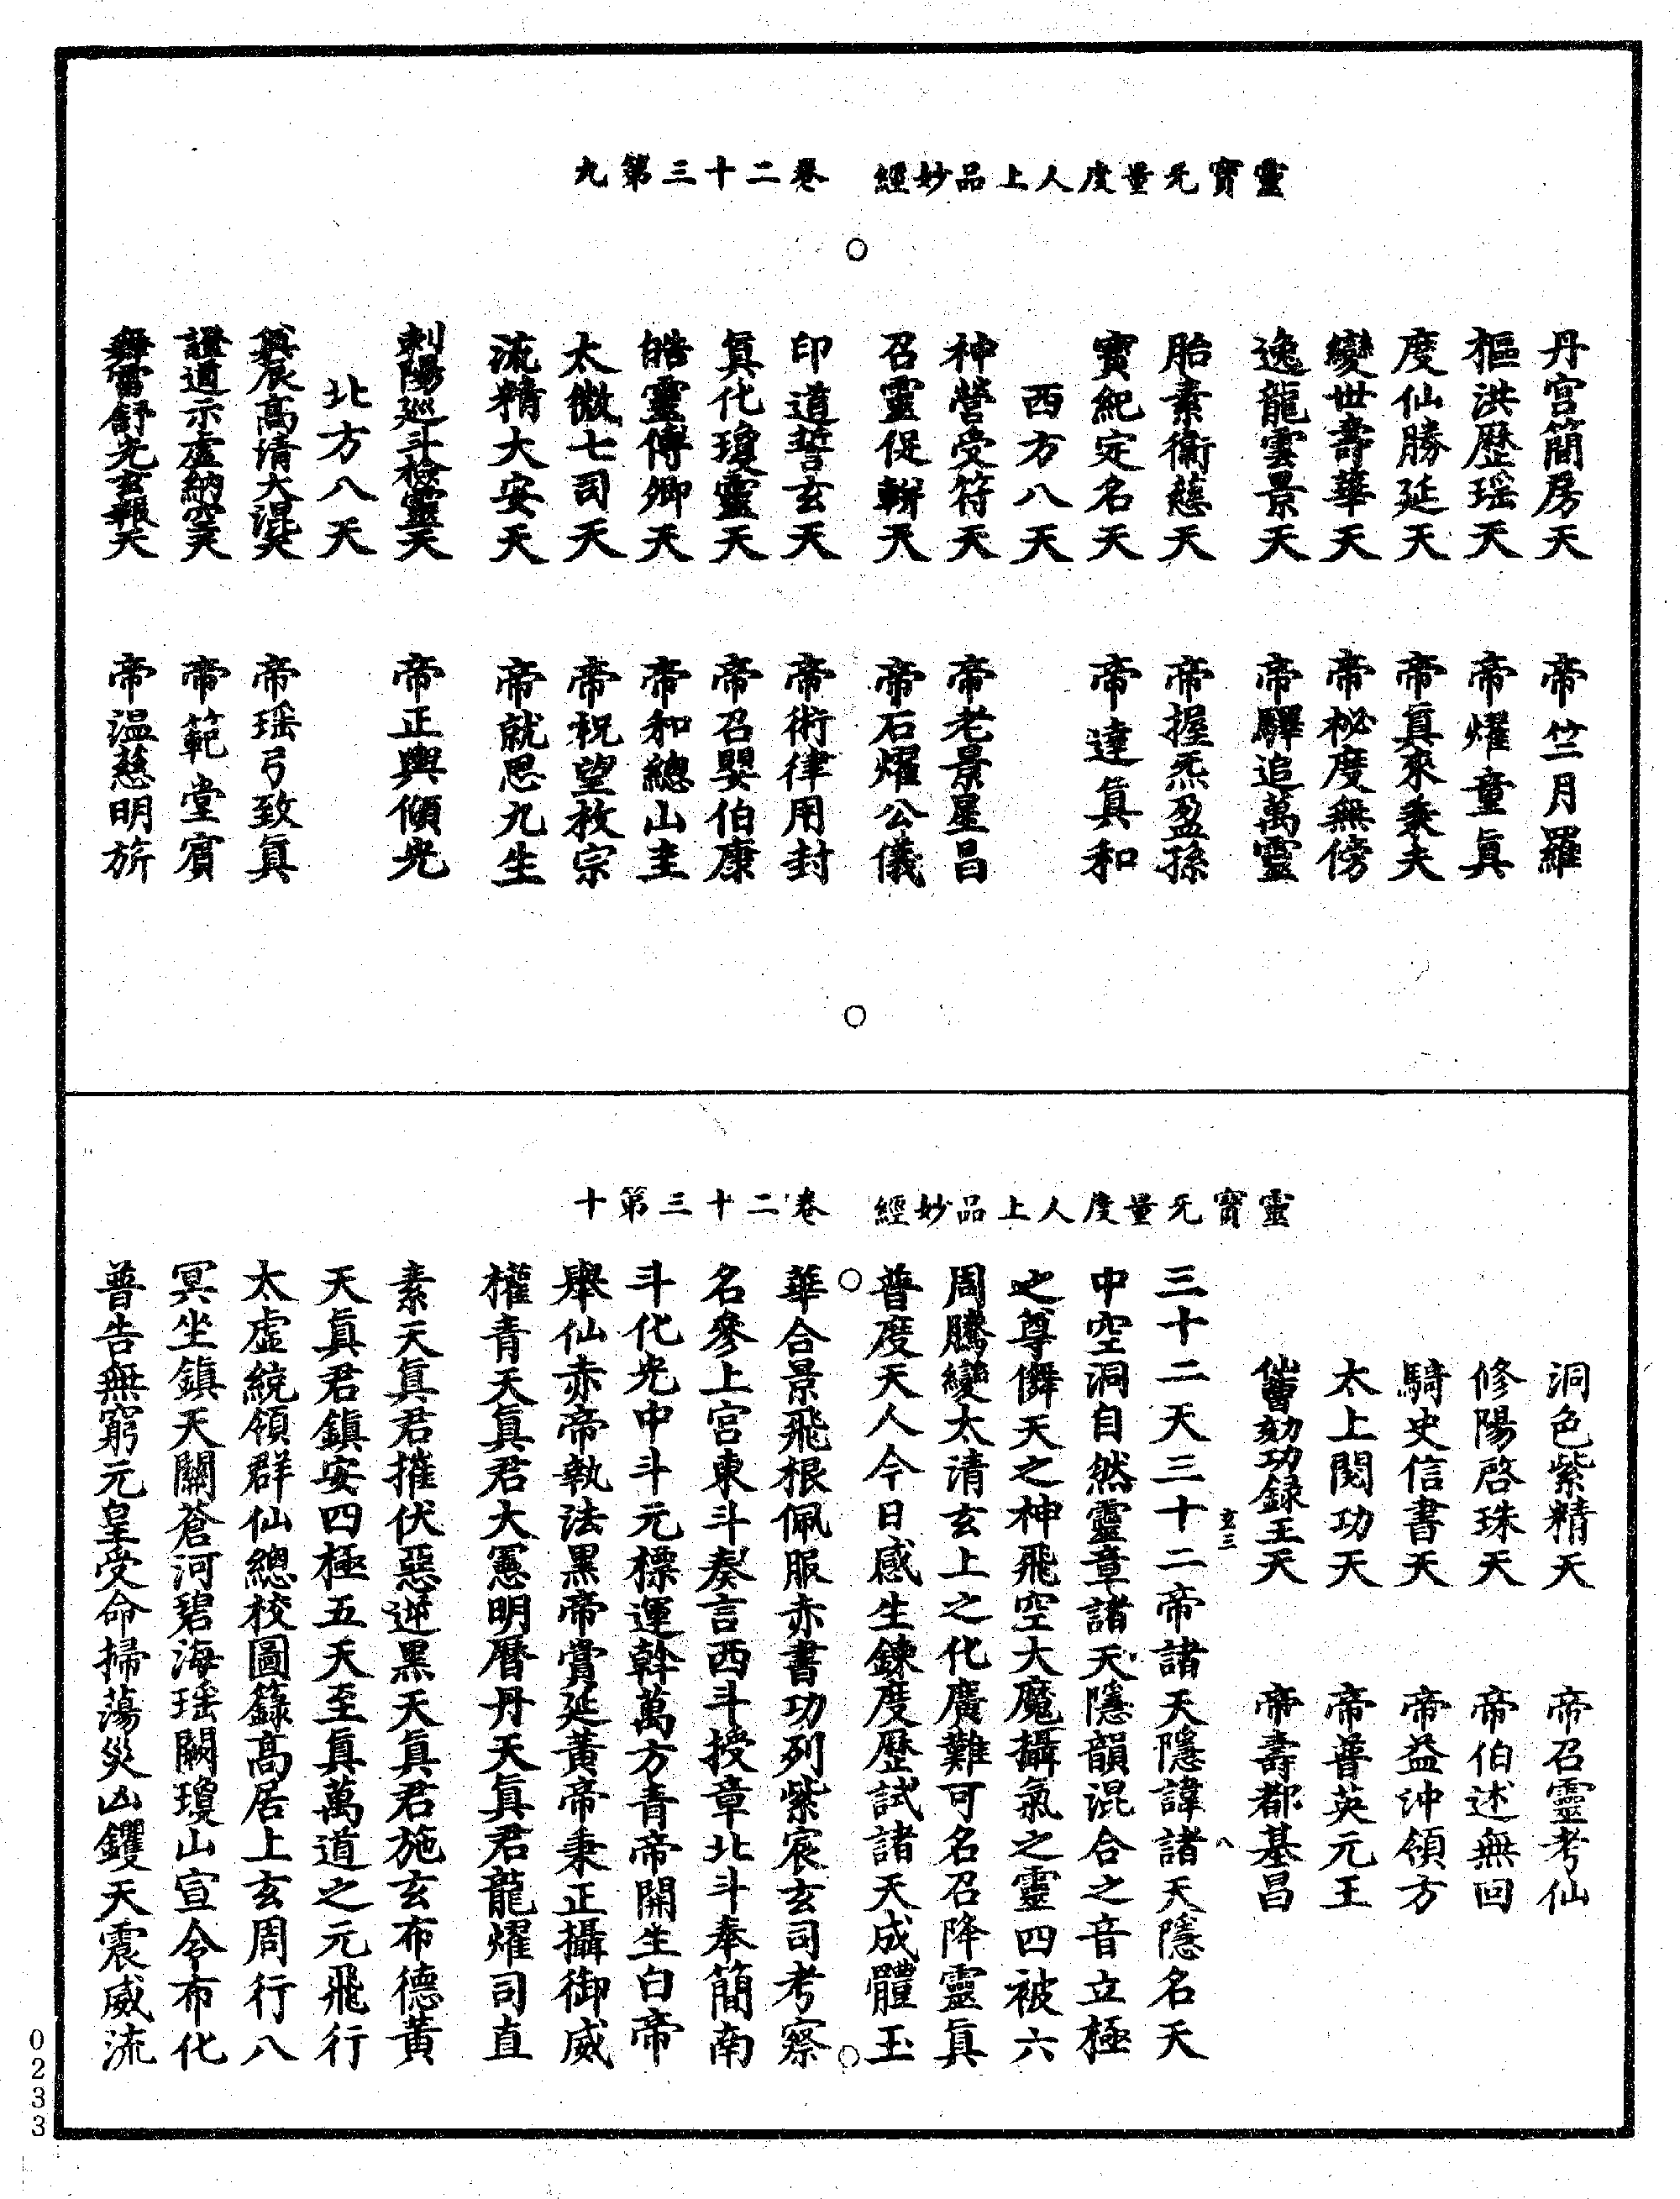 靈寶无量度人上品妙經　卷二十三第九
丹宮簡房天　帝竺月羅
樞洪歷瑶天　帝燿童真
度仙勝延天　帝真來秉夫
變世壽華天　帝祕度無傍
逸龍雲景天　帝驛追萬靈
胎素衛慈天　帝握炁盈孫
寶紀定名天　帝達真和
西方八天
神營受符天　帝老景星昌
召靈促輧天　帝石燿公儀
印道誓玄天　帝術律用封
真化瓊靈天　帝召嬰伯康
皓靈傳卿天　帝和總山主
太微七司天　帝祝望救宗
流精大安天　帝就思九生
刺陽巡斗檢靈天　帝正輿傾光
北方八天
辰髙清大混天　帝瑶弓致真
證道示虛納天　帝範堂賓
舞雷舒光玄報天　帝温慈明旂
靈寶无量度人上品妙經　卷二十三第十
洞色紫精天　帝召靈考仙
修陽啓珠天　帝伯述無回
騎史信書天　帝益沖領方
太上閱功天　帝普英元王
劾功録王天　帝壽都基昌
玄三　八
三十二天三十二帝諸天隱諱諸天隱名天
中空洞自然靈章諸天隱韻混合之音立極
之尊儛天之神飛空大魔攝氣之靈四被六
周騰變太清玄上之化廣難可名召降靈真
普度天人今日感生鍊度歷試諸天成體玉
華合景飛根佩服赤書功列紫宸玄司考察
名參上宮東斗奏言西斗授章北斗奉簡南
斗化光中斗元標運斡萬方青帝開生白帝
舉仙赤帝執法黑帝賞延黃帝秉正攝御威
權青天真君大憲明曆丹天真君龍燿司直
素天真君摧伏惡逆黑天真君施玄布德黃
天真君鎮安四極五天至真萬道之元飛行
太虛統領群仙總校圖籙髙居上玄周行八
冥坐鎮天關蒼河碧海瑶闕瓊山宣令布化
普告無窮元皇受命掃蕩災凶钁天震威流
0233